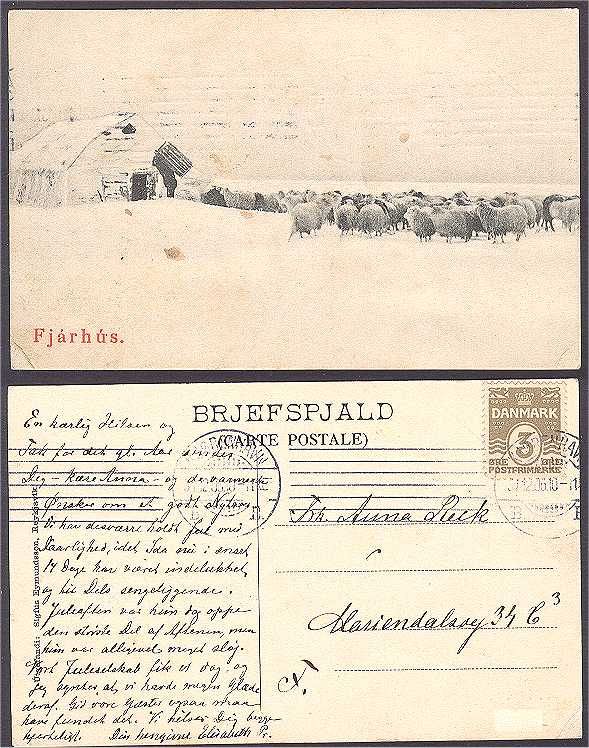 Fjárhús.
BRJEFSPJALD
(CARTE POSTALE)
DANMARK
3
ØRE ØRE
POSTFRIMÆRKE
B B.
Útgefandi: Sigfús Eymundsson, Reykjavík
En kærlig Hilsen og
Tak for det gl. Aar sendes
Dig - Kære Anna - og de varmeste
Ønsker om et godt Nytaar
Vi har desværre holdt Jul med
Daarlighed, idet Ida nu i snart
14 Dage har været indelukket,
og til Dels sengeliggende.
Juleaften var hun dog oppe
den største Del af Aftenen, men
hun var alligevel meget sløj.
Vort Juleselskab fik vi dog, og
jeg synes at, vi havde megen Glæde
deraf. Gid vore Gæster ogsaa maa
have fundet det. Vi hilser Dig begge
hjerteligt. Din hengivne Elisabeth P.
Frk. Anna
Mariendalsvej 34 C 3
F.